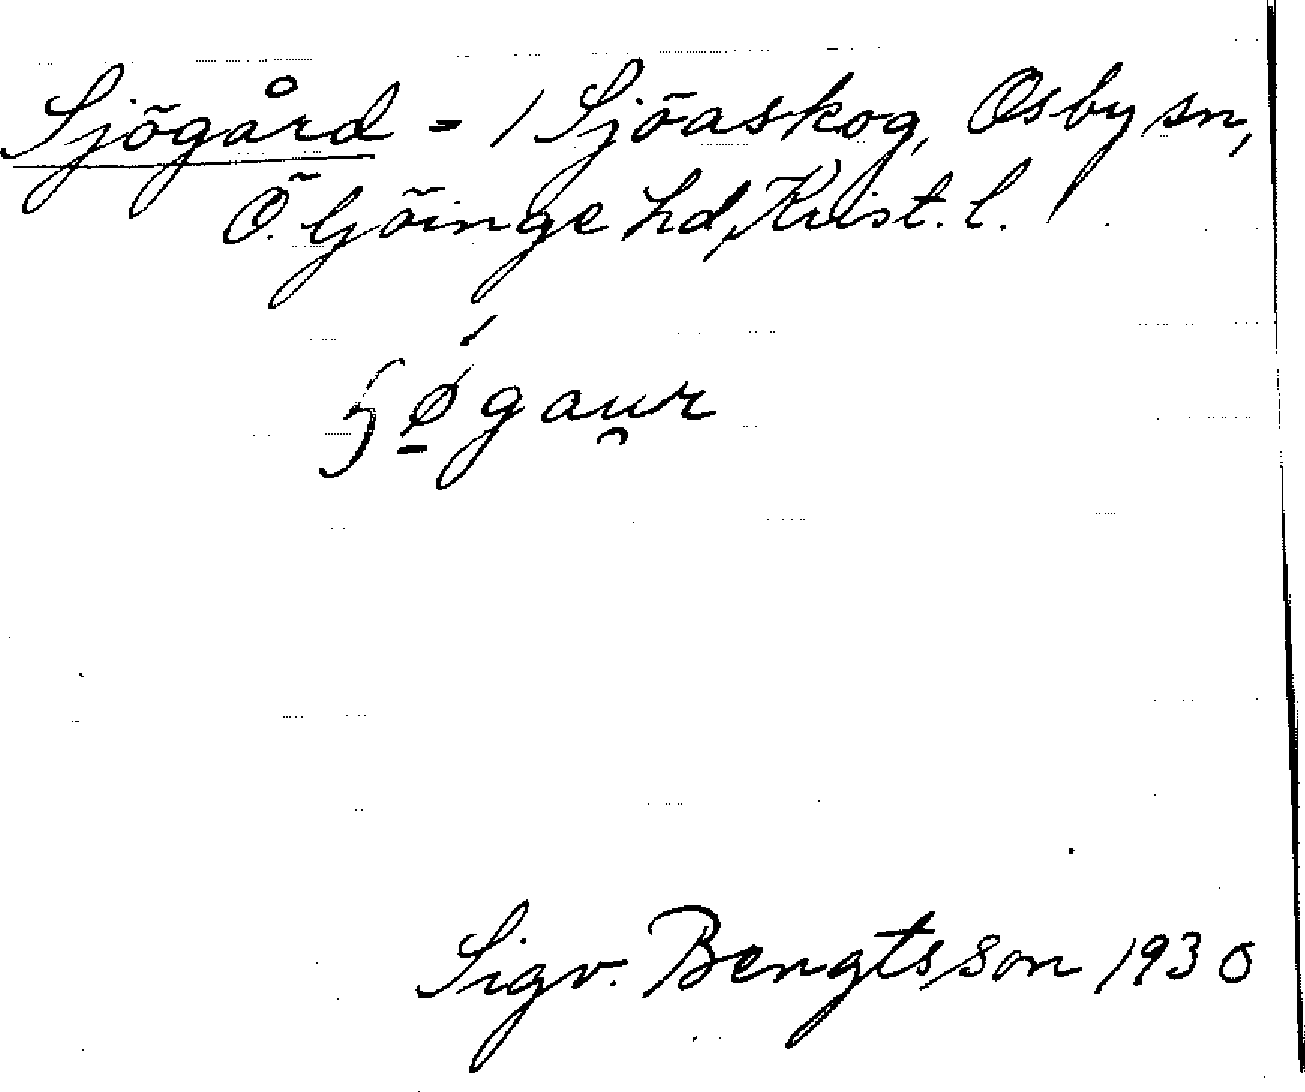 Sjögård = / Sjöaskog, Osby sn,
Ö. Göinge hd, Krist. l. /
ʃǿ̠gau̯r
Sigv. Bengtsson 1930